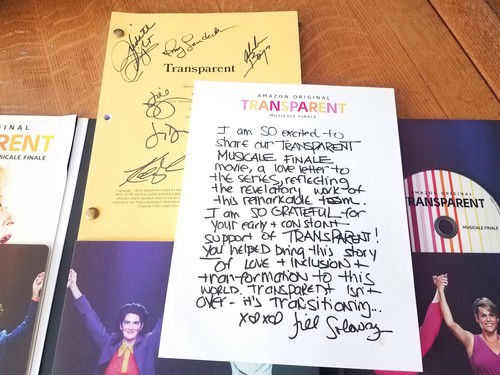 Transparent
AMAZON ORIGINAL
TRANSPARENT
MUSICALE FINALE
I am SO excited to
share our TRANSPARENT
MUSICALE FINALE
movie, a love letter to
the series, reflecting
the revelatory work of
this remarkable team.
I am SO GRATEFUL for
your early + constant
support of TRANSPARENT!
You helped bring this story
of Love + Inclusion +
transformation to this
world. TRANSPARENT isn't
over - it's transitioning...
xoxo Jill Soloway
GINAL
RENT
SICALE FINALE
TRANSPARENT
MUSICALE FINALE